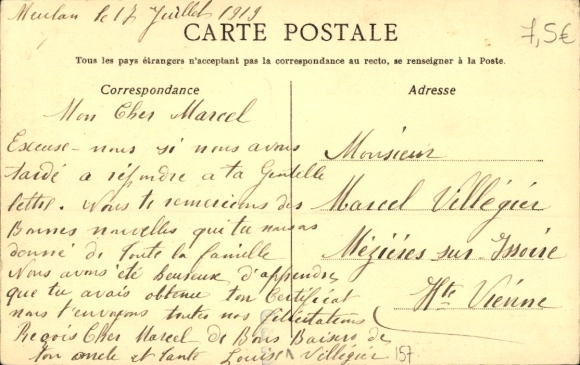 Meulan le 17 Juillet 1919
7,5€
CARTE POSTALE
Tous les pays étrangers n'acceptant pas la correspondance au recto, se renseigner à la Poste.
Correspondance
Mon Cher Marcel
Excuse-nous si nous avons
tardé a répondre a ta Gentille
lettre. Nous te remercions des
Bonnes nouvelles que tu nous as
donné de toute la famille
Nous avons été heureux d'apprendre
que tu avais obtenu ton Certificat
nous t'envoyons toutes nos félicitations
Reçois Cher Marcel de Bons Baisers de
ton oncle et tante Louise Villégier
157
Adresse
Monsieur
Marcel Villégier
Mézières sur Issoire
Hte Vienne